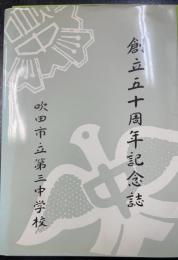 創立五十周年記念誌
吹田市立第三中学校